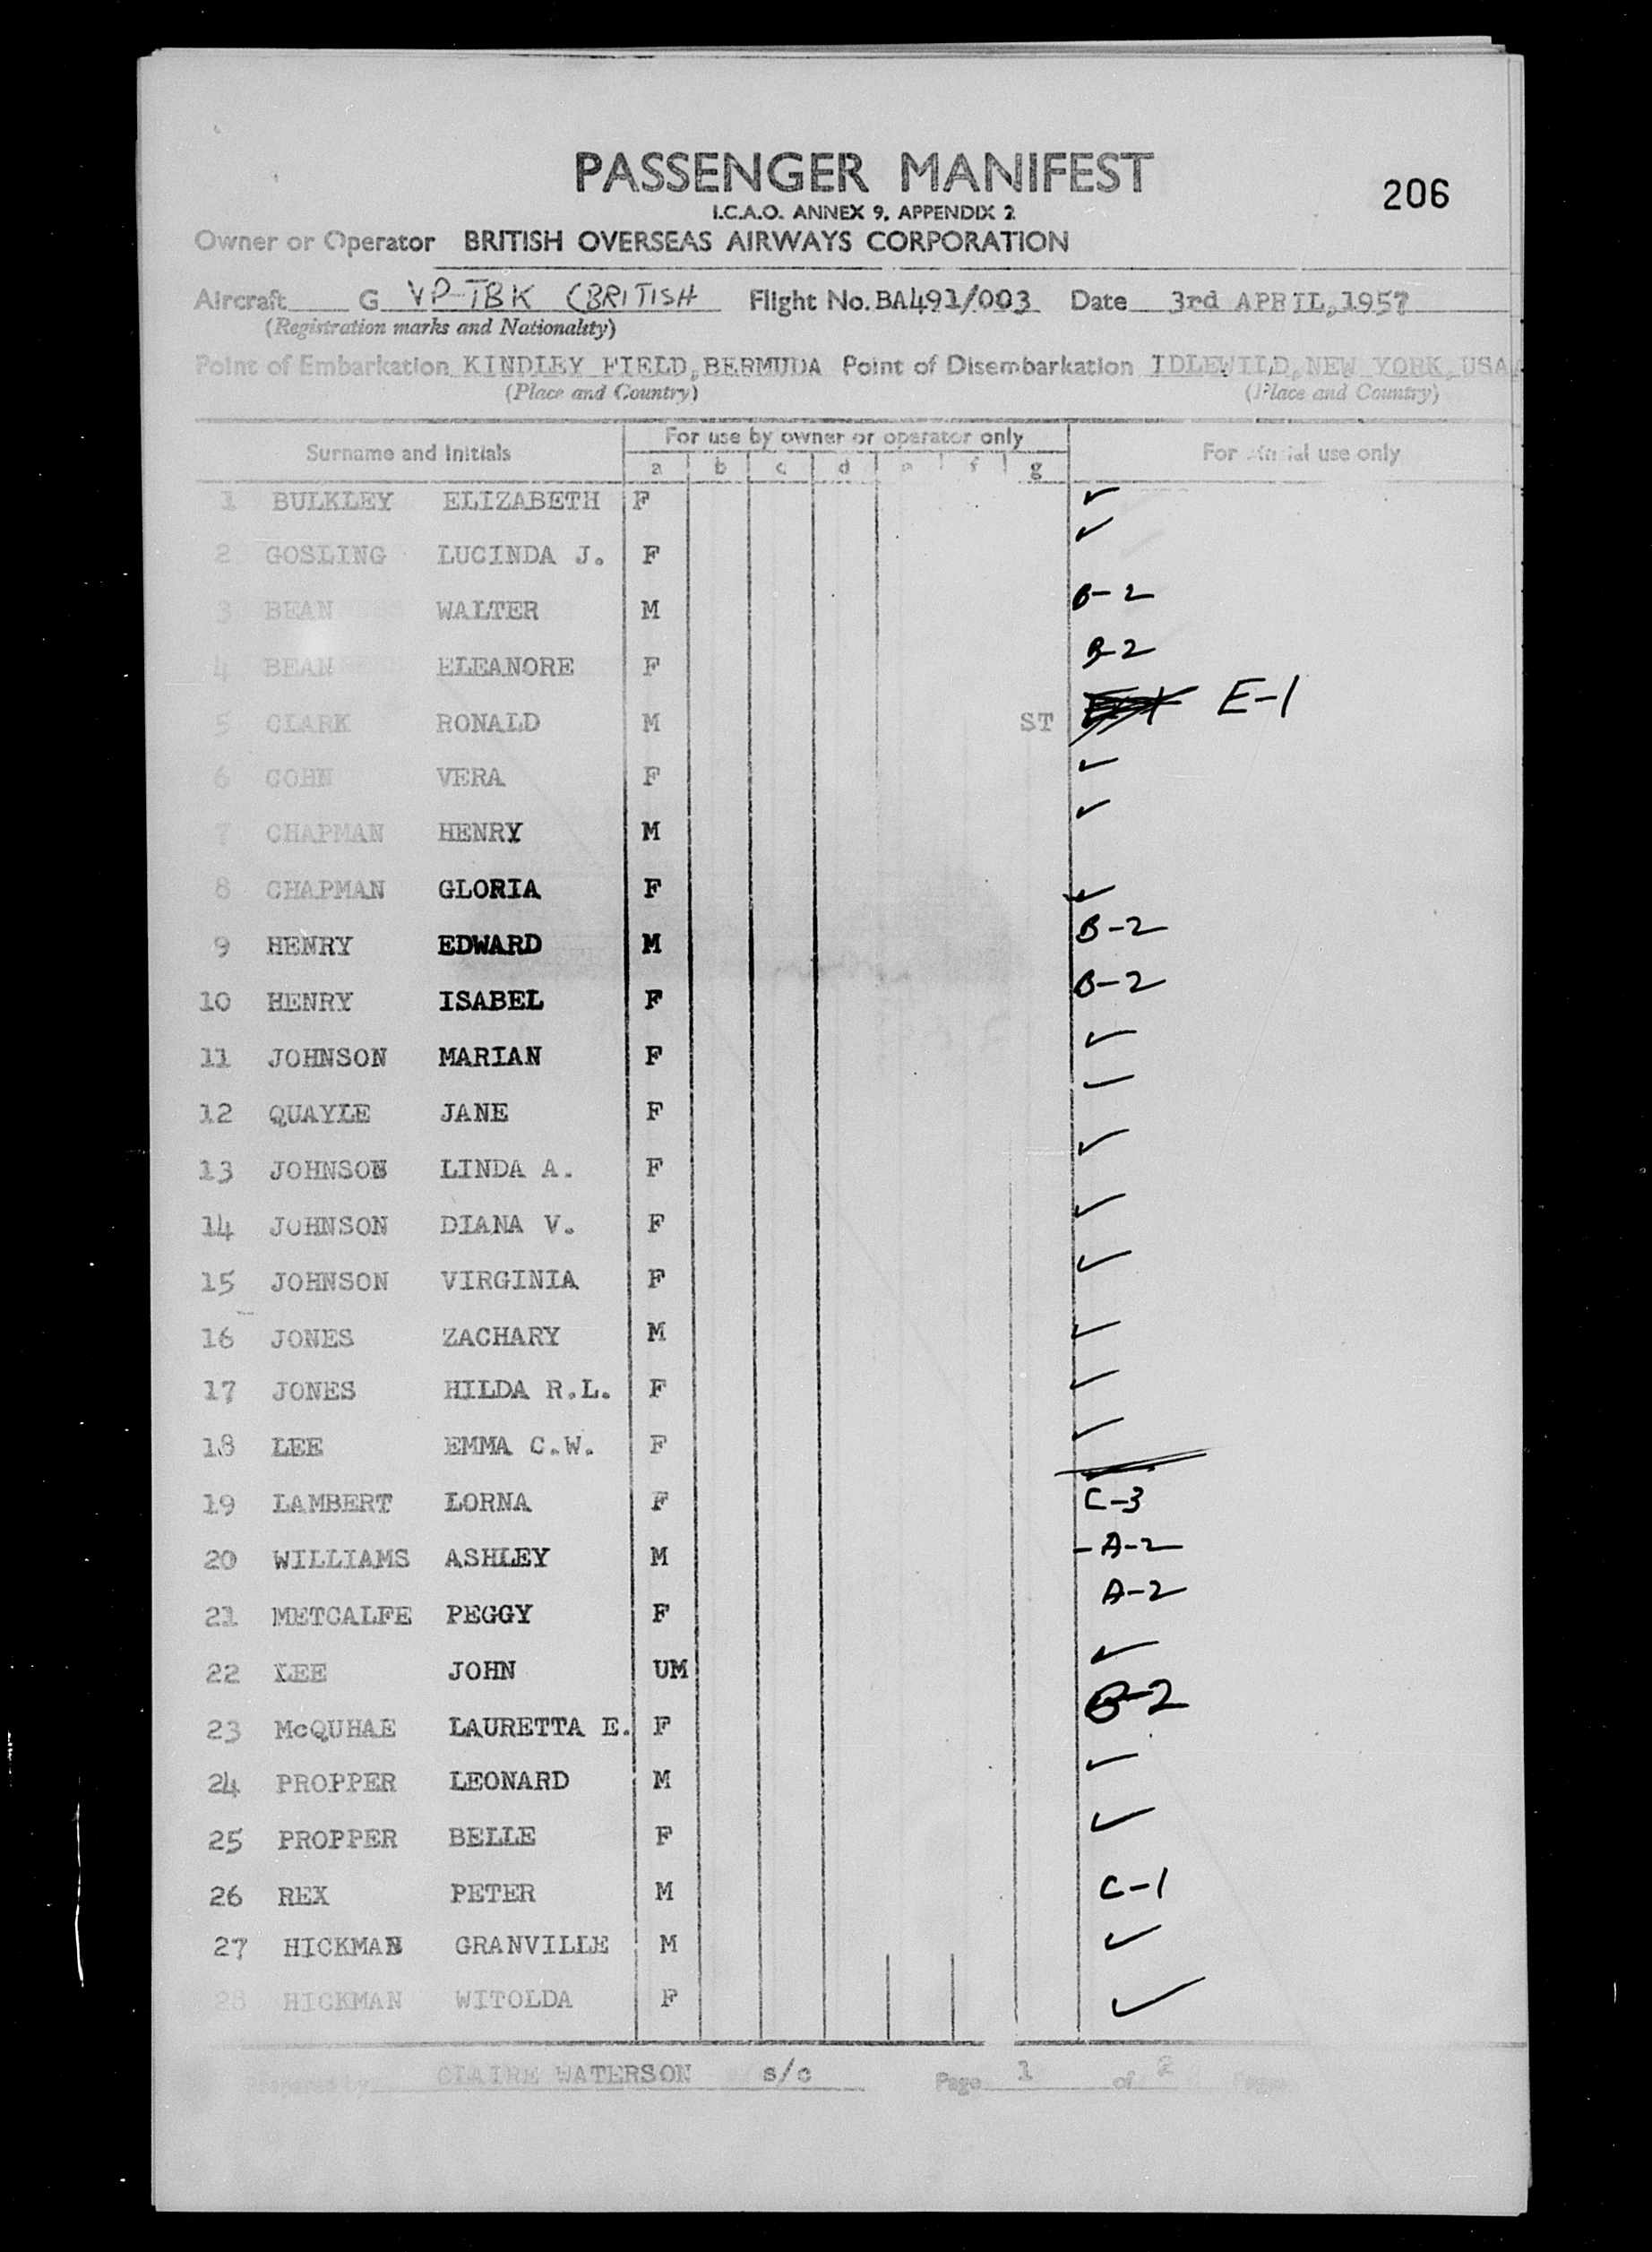 PASSENGER MANIFEST
206
I.C.A.O. ANNEX 9, APPENDIX 2
Owner or Operator BRITISH OVERSEAS AIRWAYS CORPORATION
Aircraft G VP-TBK (BRITISH Flight No. BA491/003 Date 3rd APRIL, 1957
(Registration marks and Nationality)
Point of Embarkation KINDLEY FIELD, BERMUDA Point of Disembarkation IDLEWILD, NEW YORK, USA
(Place and Country) (Place and Country)
Surname and Initials For use by owner or operator only For use only
a b c d e f g
1 BULKLEY ELIZABETH F ✓
2 GOSLING LUCINDA J. F ✓
3 BEAN WALTER M B-2
4 BEAN ELEANORE F B-2
5 CLARK RONALD M ST E-1
6 COHN VERA F ✓
7 CHAPMAN HENRY M ✓
8 CHAPMAN GLORIA F ✓
9 HENRY EDWARD M B-2
10 HENRY ISABEL F B-2
11 JOHNSON MARIAN F ✓
12 QUAYLE JANE F ✓
13 JOHNSON LINDA A. F ✓
14 JOHNSON DIANA V. F ✓
15 JOHNSON VIRGINIA F ✓
16 JONES ZACHARY M ✓
17 JONES HILDA R.L. F ✓
18 LEE EMMA C.W. F ✓
19 LAMBERT LORNA F C-3
20 WILLIAMS ASHLEY M A-2
21 METCALFE PEGGY F A-2
22 LEE JOHN UM ✓
23 McQUHAE LAURETTA E. F B-2
24 PROPPER LEONARD M ✓
25 PROPPER BELLE F ✓
26 REX PETER M C-1
27 HICKMAN GRANVILLE M ✓
28 HICKMAN WITOLDA F ✓
Prepared by CLAIRE WATERSON s/c Page 1 of 2 Pages